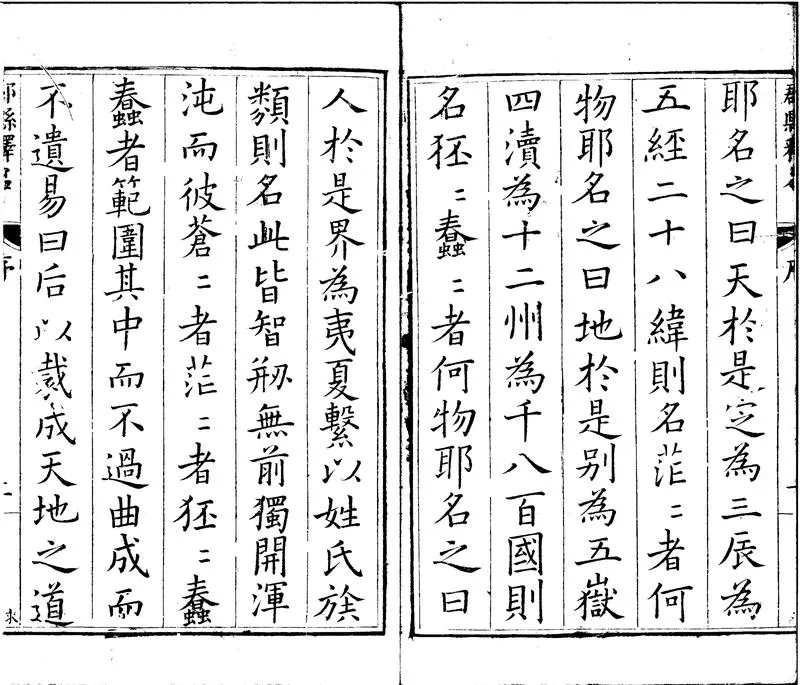 耶名之曰天於是定為三辰為
五經二十八緯則名茫〻者何
物耶名之曰地於是別為五嶽
四瀆為十二州為千八百國則
名狉〻蠢〻者何物耶名之曰
人於是界為夷夏繫以姓氏族
類則名此皆智刱無前獨開渾
沌而彼蒼〻者茫〻者狉〻蠢
蠢者範圍其中而不過曲成而
不遺易曰后以裁成天地之道
郡縣釋名
序